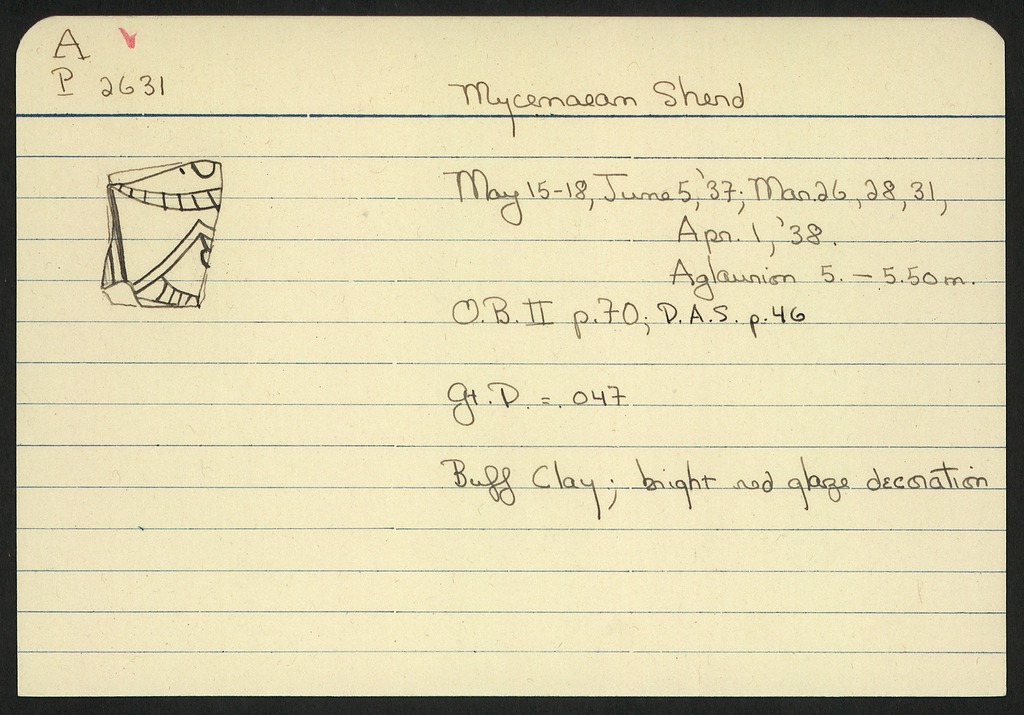 A
P 2631
Mycenaean Sherd
May 15-18, June 5, '37; Mar. 26, 28, 31,
Apr. 1, '38.
Aglaurion 5. - 5.50 m.
O.B. II p.70; D.A.S. p.46
Gt. D. = .047
Buff Clay; bright red glaze decoration